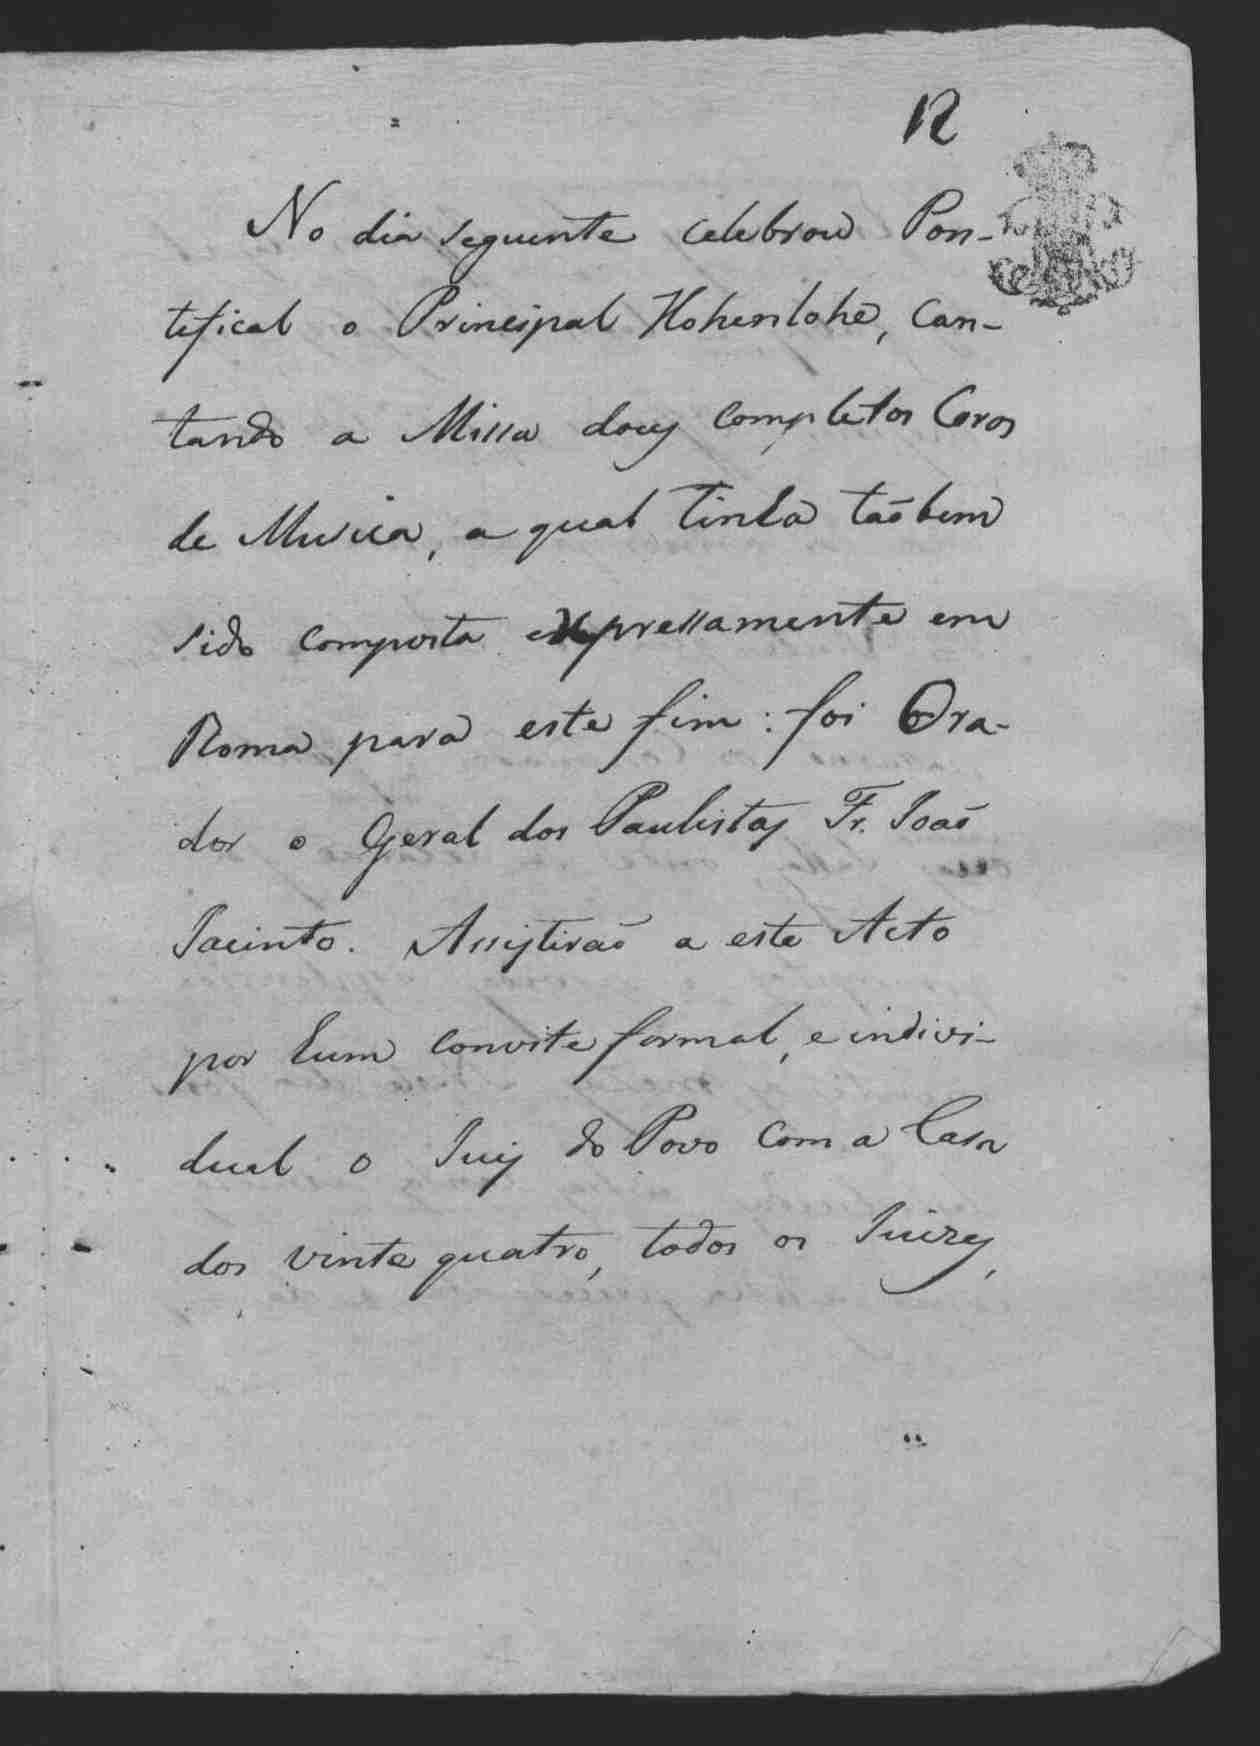 12
No dia seguinte celebrou Pon-
tefical o Principal Hohenlohe, Can-
tando a Missa douz completos Coros
de Musica, a qual tinha taõbem
sido composta expressamente em
Roma para este fim : foi Ora-
dor o Geral dos Paulistas Fr. Joaõ
Jacinto. Assistiraõ a este Acto
por hum convite formal, e indivi-
dual o Juiz do Povo com a Casa
dos vinte quatro, todos os Juizes,